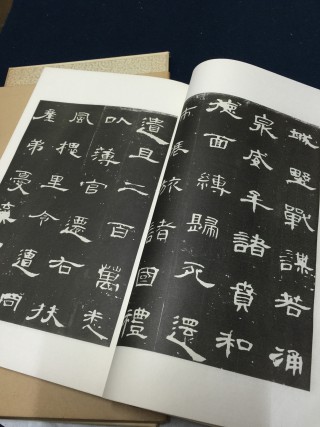 城野戰謀若涌
泉威牟諸賁和
德面縛歸死還
師振旅諸國禮
遺且二百萬悉
以薄官遷右扶
風槐里令遭同
產弟憂棄